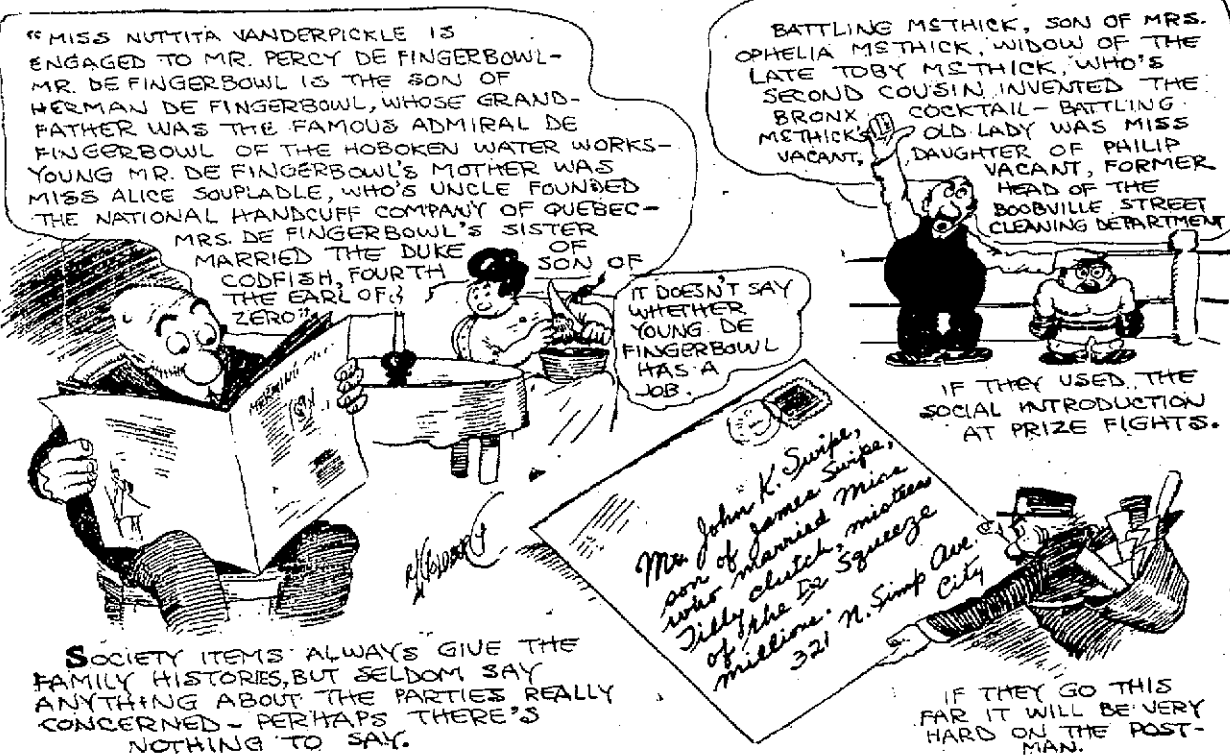 "MISS NUTTITA VANDERPICKLE IS
ENGAGED TO MR. PERCY DE FINGERBOWL-
MR. DE FINGERBOWL IS THE SON OF
HERMAN DE FINGERBOWL, WHOSE GRAND-
FATHER WAS THE FAMOUS ADMIRAL DE
FINGERBOWL OF THE HOBOKEN WATER WORKS-
YOUNG MR. DE FINGERBOWL'S MOTHER WAS
MISS ALICE SOUPLADLE, WHO'S UNCLE FOUNDED
THE NATIONAL HANDCUFF COMPANY OF QUEBEC-
MRS. DE FINGERBOWL'S SISTER
MARRIED THE DUKE OF
CODFISH, FOURTH SON OF
THE EARL OF
ZERO"
IT DOESN'T SAY
WHETHER
YOUNG DE
FINGERBOWL
HAS A
JOB.
MORNING
SOCIETY ITEMS ALWAYS GIVE THE
FAMILY HISTORIES, BUT SELDOM SAY
ANYTHING ABOUT THE PARTIES REALLY
CONCERNED - PERHAPS THERE'S
NOTHING TO SAY.
BATTLING MSTHICK, SON OF MRS.
OPHELIA MSTHICK, WIDOW OF THE
LATE TOBY MSTHICK, WHO'S
SECOND COUSIN INVENTED THE
BRONX COCKTAIL - BATTLING
MSTHICK'S OLD LADY WAS MISS
VACANT, DAUGHTER OF PHILIP
VACANT, FORMER
HEAD OF THE
BOOBVILLE STREET
CLEANING DEPARTMENT
IF THEY USED THE
SOCIAL INTRODUCTION
AT PRIZE FIGHTS.
John K. Swipe,
son of James Swipe,
who married Miss
Tilly Clutch, mistress
of the De Squeeze
millions.
321 N. Simp Ave.
City
IF THEY GO THIS
FAR IT WILL BE VERY
HARD ON THE POST-
MAN.